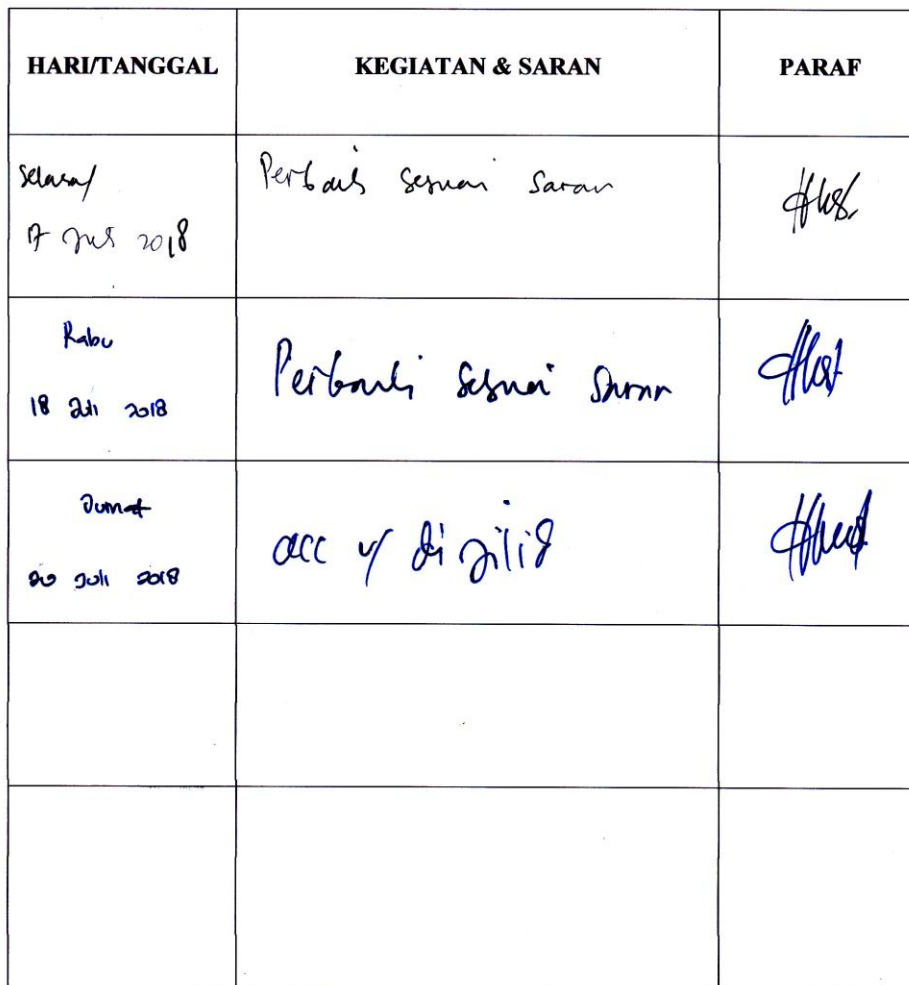 HARI/TANGGAL KEGIATAN & SARAN PARAF
Selasa/ Perbaiki sesuai saran
17 Juli 2018
Rabu
18 Juli 2018 Perbaiki sesuai saran
Jumat
20 Juli 2018 acc u/ di jilid